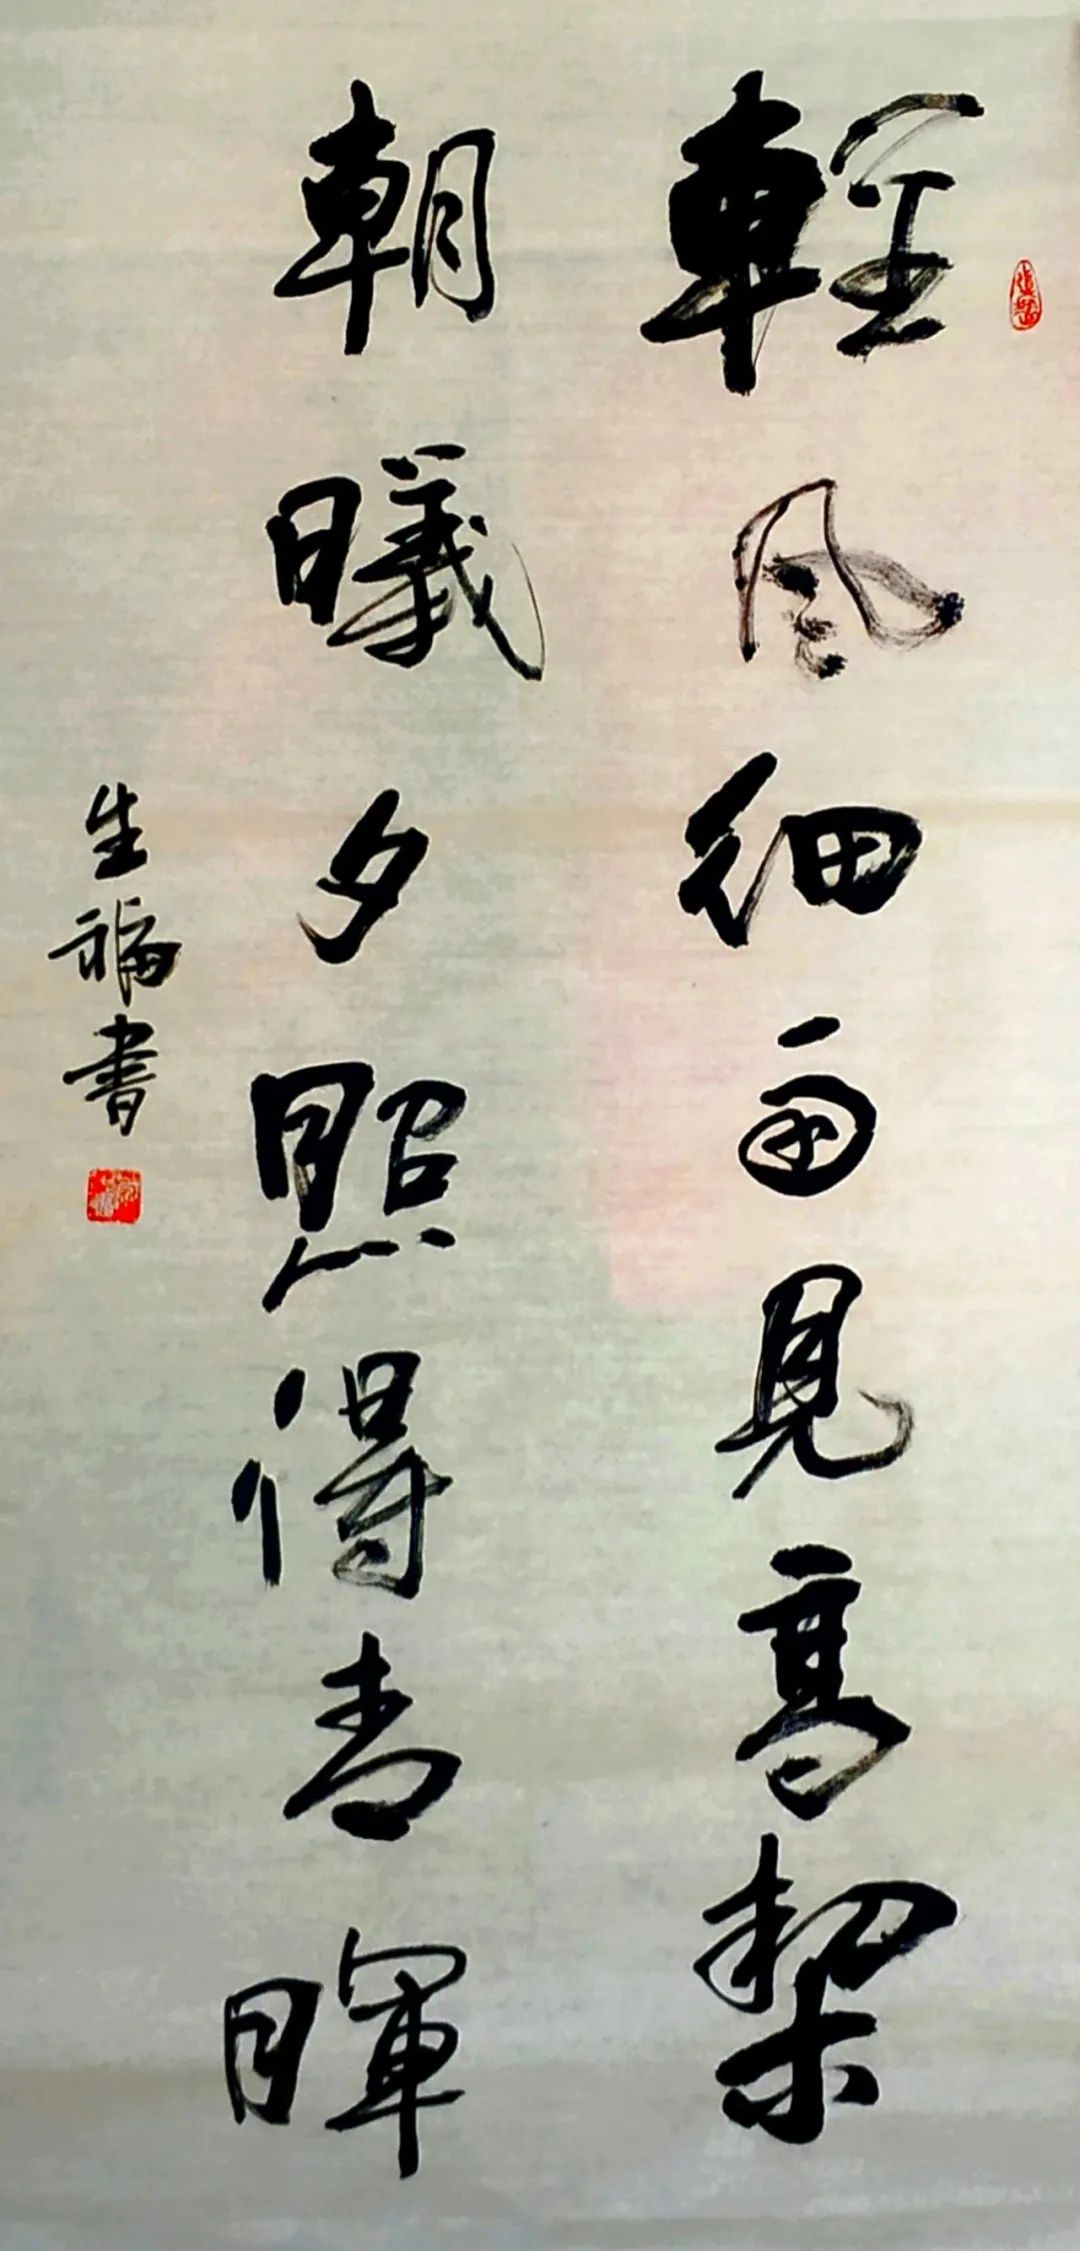 輕風細雨見高潔
朝曦夕照得青暉
生福書